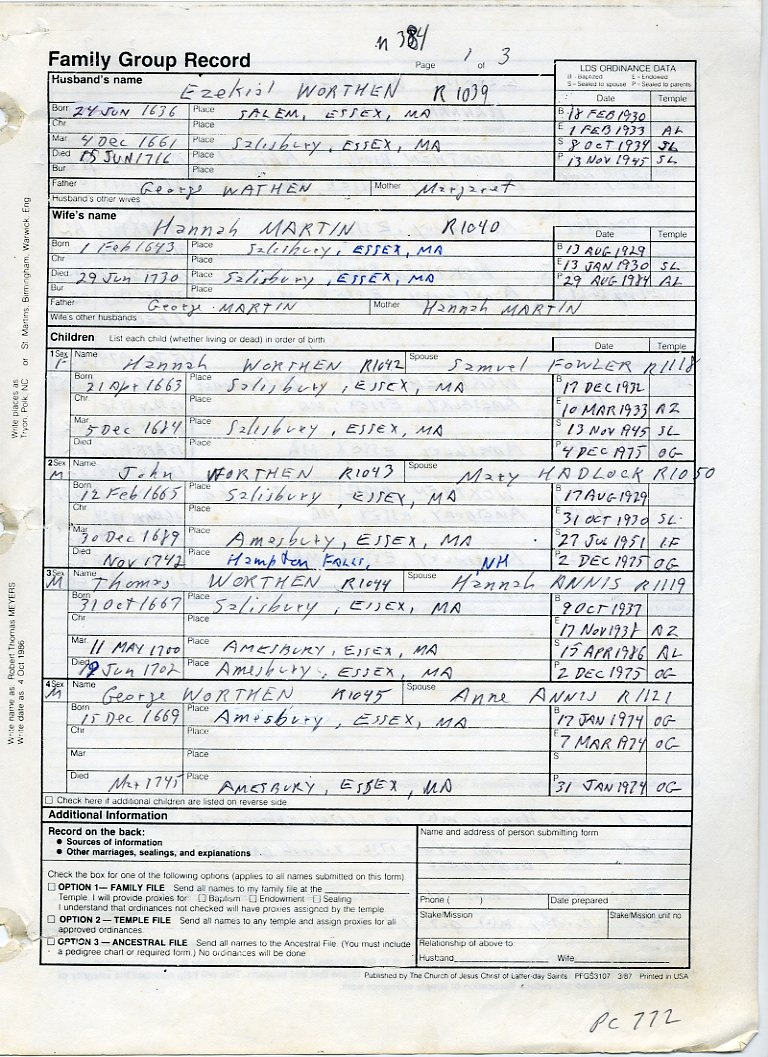 n 384
Family Group Record
Page 1 of 3
LDS ORDINANCE DATA
B - Baptized E - Endowed
S - Sealed to spouse P - Sealed to parents
Husband's name
Ezekiel WORTHEN R1039
Date Temple
Born 24 JUN 1636 Place SALEM, ESSEX, MA B 18 FEB 1930
Chr Place E 1 FEB 1933 AL
Mar 4 Dec 1661 Place Salisbury, ESSEX, MA S 8 OCT 1934 SL
Died 15 JUN 1716 Place P 13 NOV 1945 SL
Bur Place
Father George WATHEN Mother Margaret
Husband's other wives
Wife's name
Hannah MARTIN R1040
Date Temple
Born 1 Feb 1643 Place Salisbury, ESSEX, MA B 13 AUG 1929
Chr Place E 13 JAN 1930 SL
Died 29 Jun 1730 Place Salisbury, ESSEX, MA P 29 AUG 1984 AL
Bur Place
Father George MARTIN Mother Hannah MARTIN
Wife's other husbands
Children List each child (whether living or dead) in order of birth Date Temple
1 Sex F Name Hannah WORTHEN R1042 Spouse Samuel FOWLER R1118
Born 21 Apr 1663 Place Salisbury, ESSEX, MA B 17 DEC 1932
Chr. Place E 10 MAR 1933 AZ
Mar 5 Dec 1684 Place Salisbury, ESSEX, MA S 13 NOV 1945 SL
Died Place P 4 DEC 1975 OG
2 Sex M Name John WORTHEN R1043 Spouse Mary HADLOCK R1050
Born 12 Feb 1665 Place Salisbury, ESSEX, MA B 17 AUG 1929
Chr Place E 31 OCT 1930 SL
Mar 30 Dec 1689 Place Amesbury, ESSEX, MA S 27 JUL 1951 IF
Died Nov 1742 Place Hampton FALLS, NH P 2 DEC 1975 OG
3 Sex M Name Thomas WORTHEN R1044 Spouse Hannah ANNIS R1119
Born 31 Oct 1667 Place Salisbury, ESSEX, MA B 9 OCT 1937
Chr Place E 17 NOV 1938 AZ
Mar. 11 MAY 1700 Place AMESBURY, ESSEX, MA S 15 APR 1986 AL
Died Jun 1702 Place Amesbury, ESSEX, MA P 2 DEC 1975 OG
4 Sex M Name George WORTHEN R1045 Spouse Anne ANNIS R1121
Born 15 Dec 1669 Place Amesbury, ESSEX, MA B 17 JAN 1974 OG
Chr Place E 7 MAR 1974 OG
Mar Place S
Died Mar 1745 Place AMESBURY, ESSEX, MA P 31 JAN 1974 OG
Check here if additional children are listed on reverse side
Additional Information
Record on the back:
• Sources of information
• Other marriages, sealings, and explanations
Check the box for one of the following options (applies to all names submitted on this form)
OPTION 1— FAMILY FILE Send all names to my family file at the
Temple. I will provide proxies for Baptism Endowment Sealing
I understand that ordinances not checked will have proxies assigned by the temple
OPTION 2 — TEMPLE FILE Send all names to any temple and assign proxies for all
approved ordinances.
OPTION 3 — ANCESTRAL FILE Send all names to the Ancestral File. (You must include
a pedigree chart or required form.) No ordinances will be done
Name and address of person submitting form
Phone ( ) Date prepared
Stake/Mission Stake/Mission unit no
Relationship of above to
Husband Wife
Published by The Church of Jesus Christ of Latter-day Saints PFGS3107 3/87 Printed in USA
PC 772
Write places as Tryon, Polk, NC or St. Martins, Birmingham, Warwick, Eng
Write name as Robert Thomas MEYERS
Write date as 4 Oct 1986